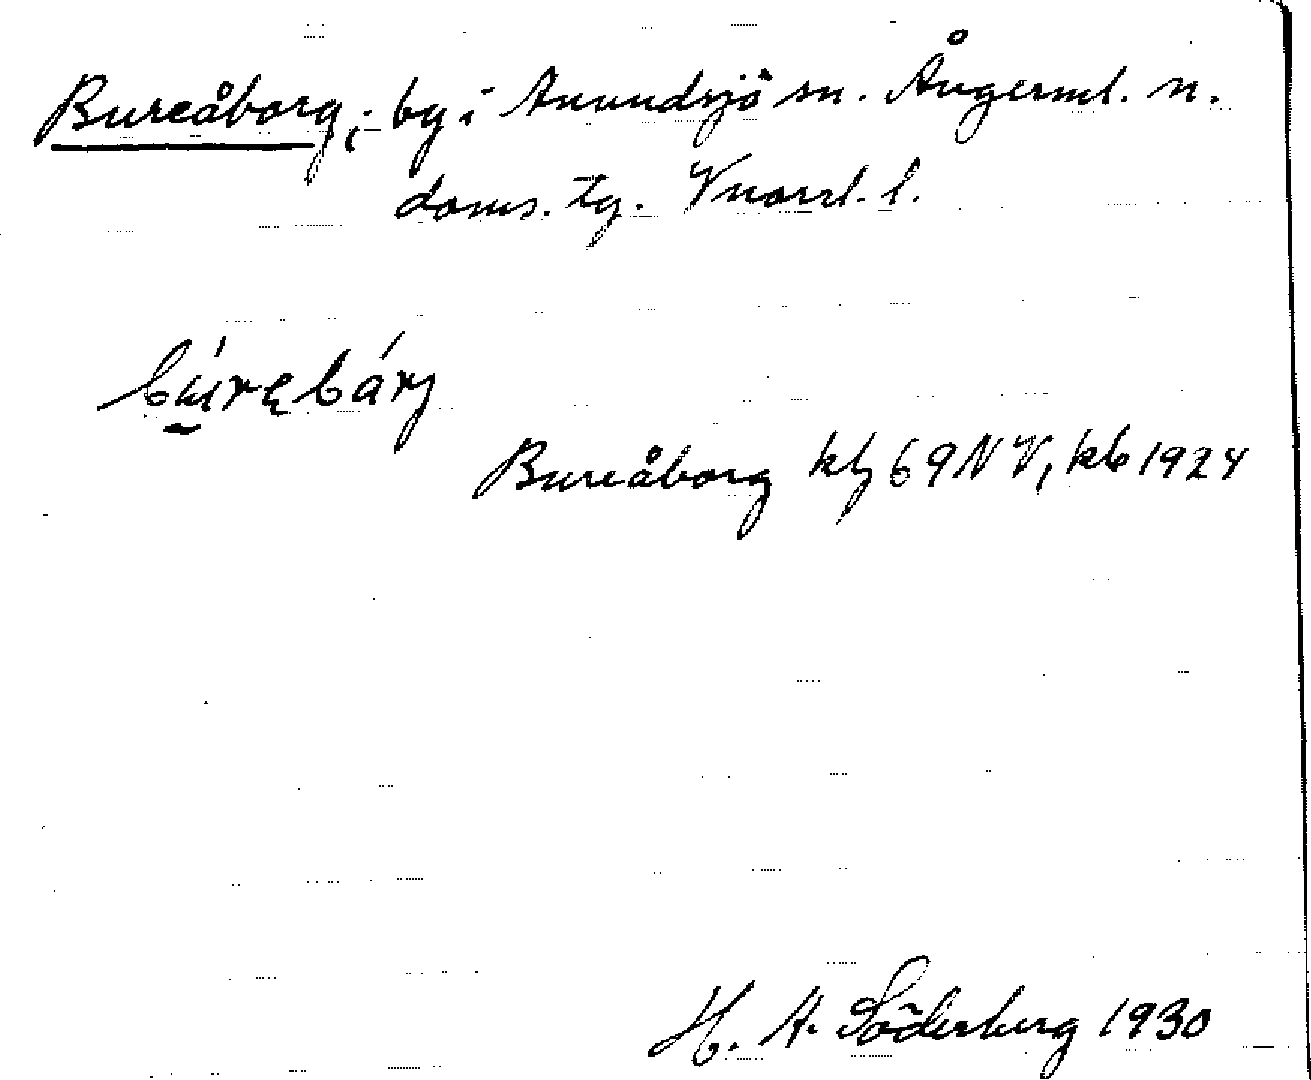 Bureåborg, by i Anundsjö sn. Ångerml. n.
doms. tg. Vnorrl. l.
Bureåborg kbl 69 NV, kb 1924
H. A. Söderberg 1930